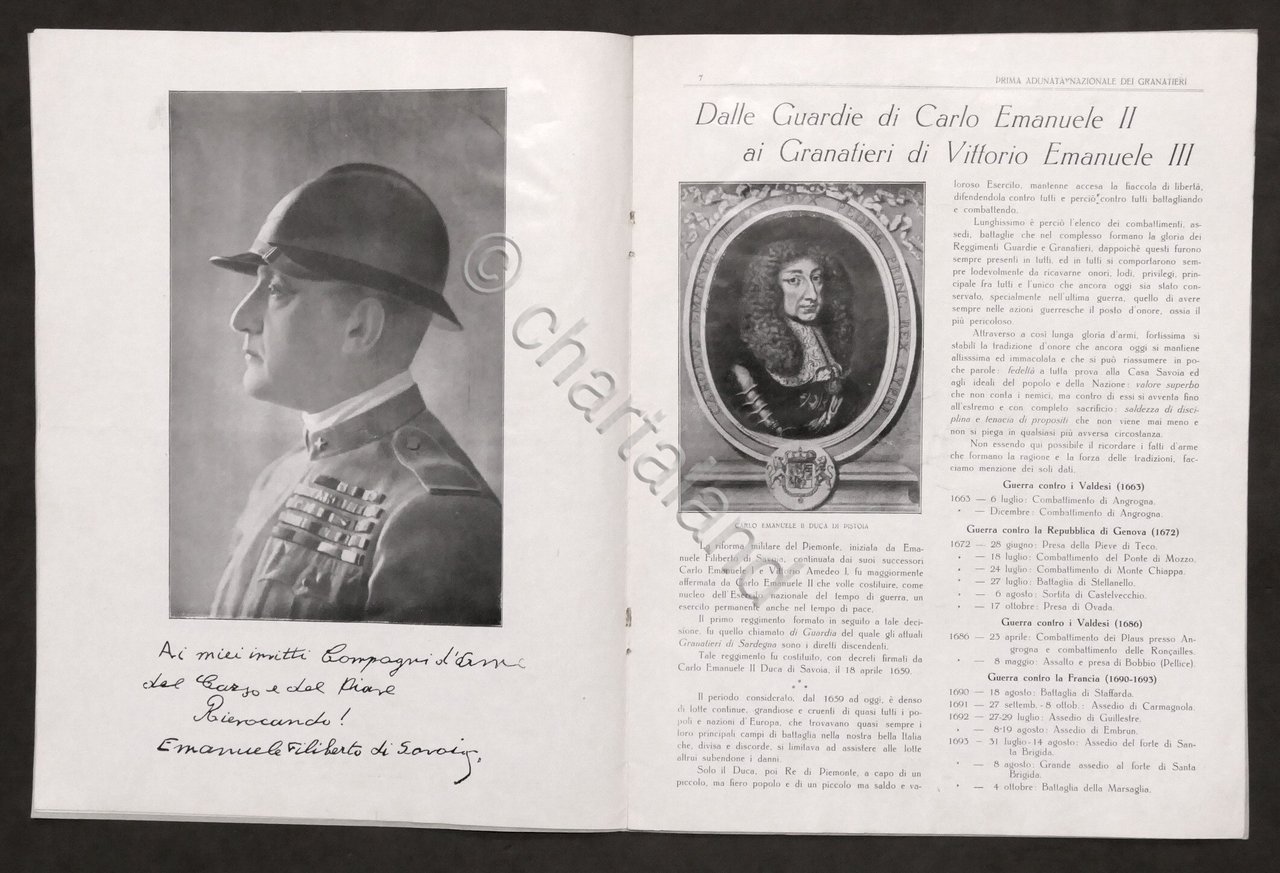 Ai miei invitti Compagni d'arme
del Carso e del Piave
Rievocando!
Emanuele Filiberto di Savoia.
7
PRIMA ADUNATA NAZIONALE DEI GRANATIERI
Dalle Guardie di Carlo Emanuele II
ai Granatieri di Vittorio Emanuele III
CARLO EMANUELE II DUCA DI PISTOIA
La riforma militare del Piemonte, iniziata da Ema-
nuele Filiberto di Savoia, continuata dai suoi successori
Carlo Emanuele I e Vittorio Amedeo I, fu maggiormente
affermata da Carlo Emanuele II che volle costituire, come
nucleo dell'Esercito nazionale del tempo di guerra, un
esercito permanente anche nel tempo di pace.
Il primo reggimento formato in seguito a tale deci-
sione, fu quello chiamato di Guardia del quale gli attuali
Granatieri di Sardegna sono i diretti discendenti.
Tale reggimento fu costituito, con decreti firmati da
Carlo Emanuele II Duca di Savoia, il 18 aprile 1659.
* * *
Il periodo considerato, dal 1659 ad oggi, è denso
di lotte continue, grandiose e cruenti di quasi tutti i po-
poli e nazioni d'Europa, che trovavano quasi sempre i
loro principali campi di battaglia nella nostra bella Italia
che, divisa e discorde, si limitava ad assistere alle lotte
altrui subendone i danni.
Solo il Duca, poi Re di Piemonte, a capo di un
piccolo, ma fiero popolo e di un piccolo ma saldo e va-
loroso Esercito, mantenne accesa la fiaccola di libertà,
difendendola contro tutti e perciò contro tutti battagliando
e combattendo.
Lunghissimo è perciò l'elenco dei combattimenti, as-
sedi, battaglie che nel complesso formano la gloria dei
Reggimenti Guardie e Granatieri, dappoichè questi furono
sempre presenti in tutti, ed in tutti si comportarono sem-
pre lodevolmente da ricavarne onori, lodi, privilegi, prin-
cipale fra tutti e l'unico che ancora oggi sia stato con-
servato, specialmente nell'ultima guerra, quello di avere
sempre nelle azioni guerresche il posto d'onore, ossia il
più pericoloso.
Attraverso a così lunga gloria d'armi, fortissima si
stabilì la tradizione d'onore che ancora oggi si mantiene
altissima ed immacolata e che si può riassumere in po-
che parole: fedeltà a tutta prova alla Casa Savoia ed
agli ideali del popolo e della Nazione: valore superbo
che non conta i nemici, ma contro di essi si avventa fino
all'estremo e con completo sacrificio: saldezza di disci-
plina e tenacia di propositi che non viene mai meno e
non si piega in qualsiasi più avversa circostanza.
Non essendo qui possibile il ricordare i fatti d'arme
che formano la ragione e la forza delle tradizioni, fac-
ciamo menzione dei soli dati.
Guerra contro i Valdesi (1663)
1663 — 6 luglio: Combattimento di Angrogna.
" — Dicembre: Combattimento di Angrogna.
Guerra contro la Repubblica di Genova (1672)
1672 — 28 giugno: Presa della Pieve di Teco.
" — 18 luglio: Combattimento del Ponte di Mozzo.
" — 24 luglio: Combattimento di Monte Chiappa.
" — 27 luglio: Battaglia di Stellanello.
" — 6 agosto: Sortita di Castelvecchio.
" — 17 ottobre: Presa di Ovada.
Guerra contro i Valdesi (1686)
1686 — 23 aprile: Combattimento dei Plaus presso An-
grogna e combattimento delle Ronçailles.
" — 8 maggio: Assalto e presa di Bobbio (Pellice).
Guerra contro la Francia (1690-1693)
1690 — 18 agosto: Battaglia di Staffarda.
1691 — 27 settemb. - 8 ottob.: Assedio di Carmagnola.
1692 — 27-29 luglio: Assedio di Guillestre.
" — 8-19 agosto: Assedio di Embrun.
1693 — 31 luglio-14 agosto: Assedio del forte di San-
ta Brigida.
" — 8 agosto: Grande assedio al forte di Santa
Brigida.
" — 4 ottobre: Battaglia della Marsaglia.
© chartaland